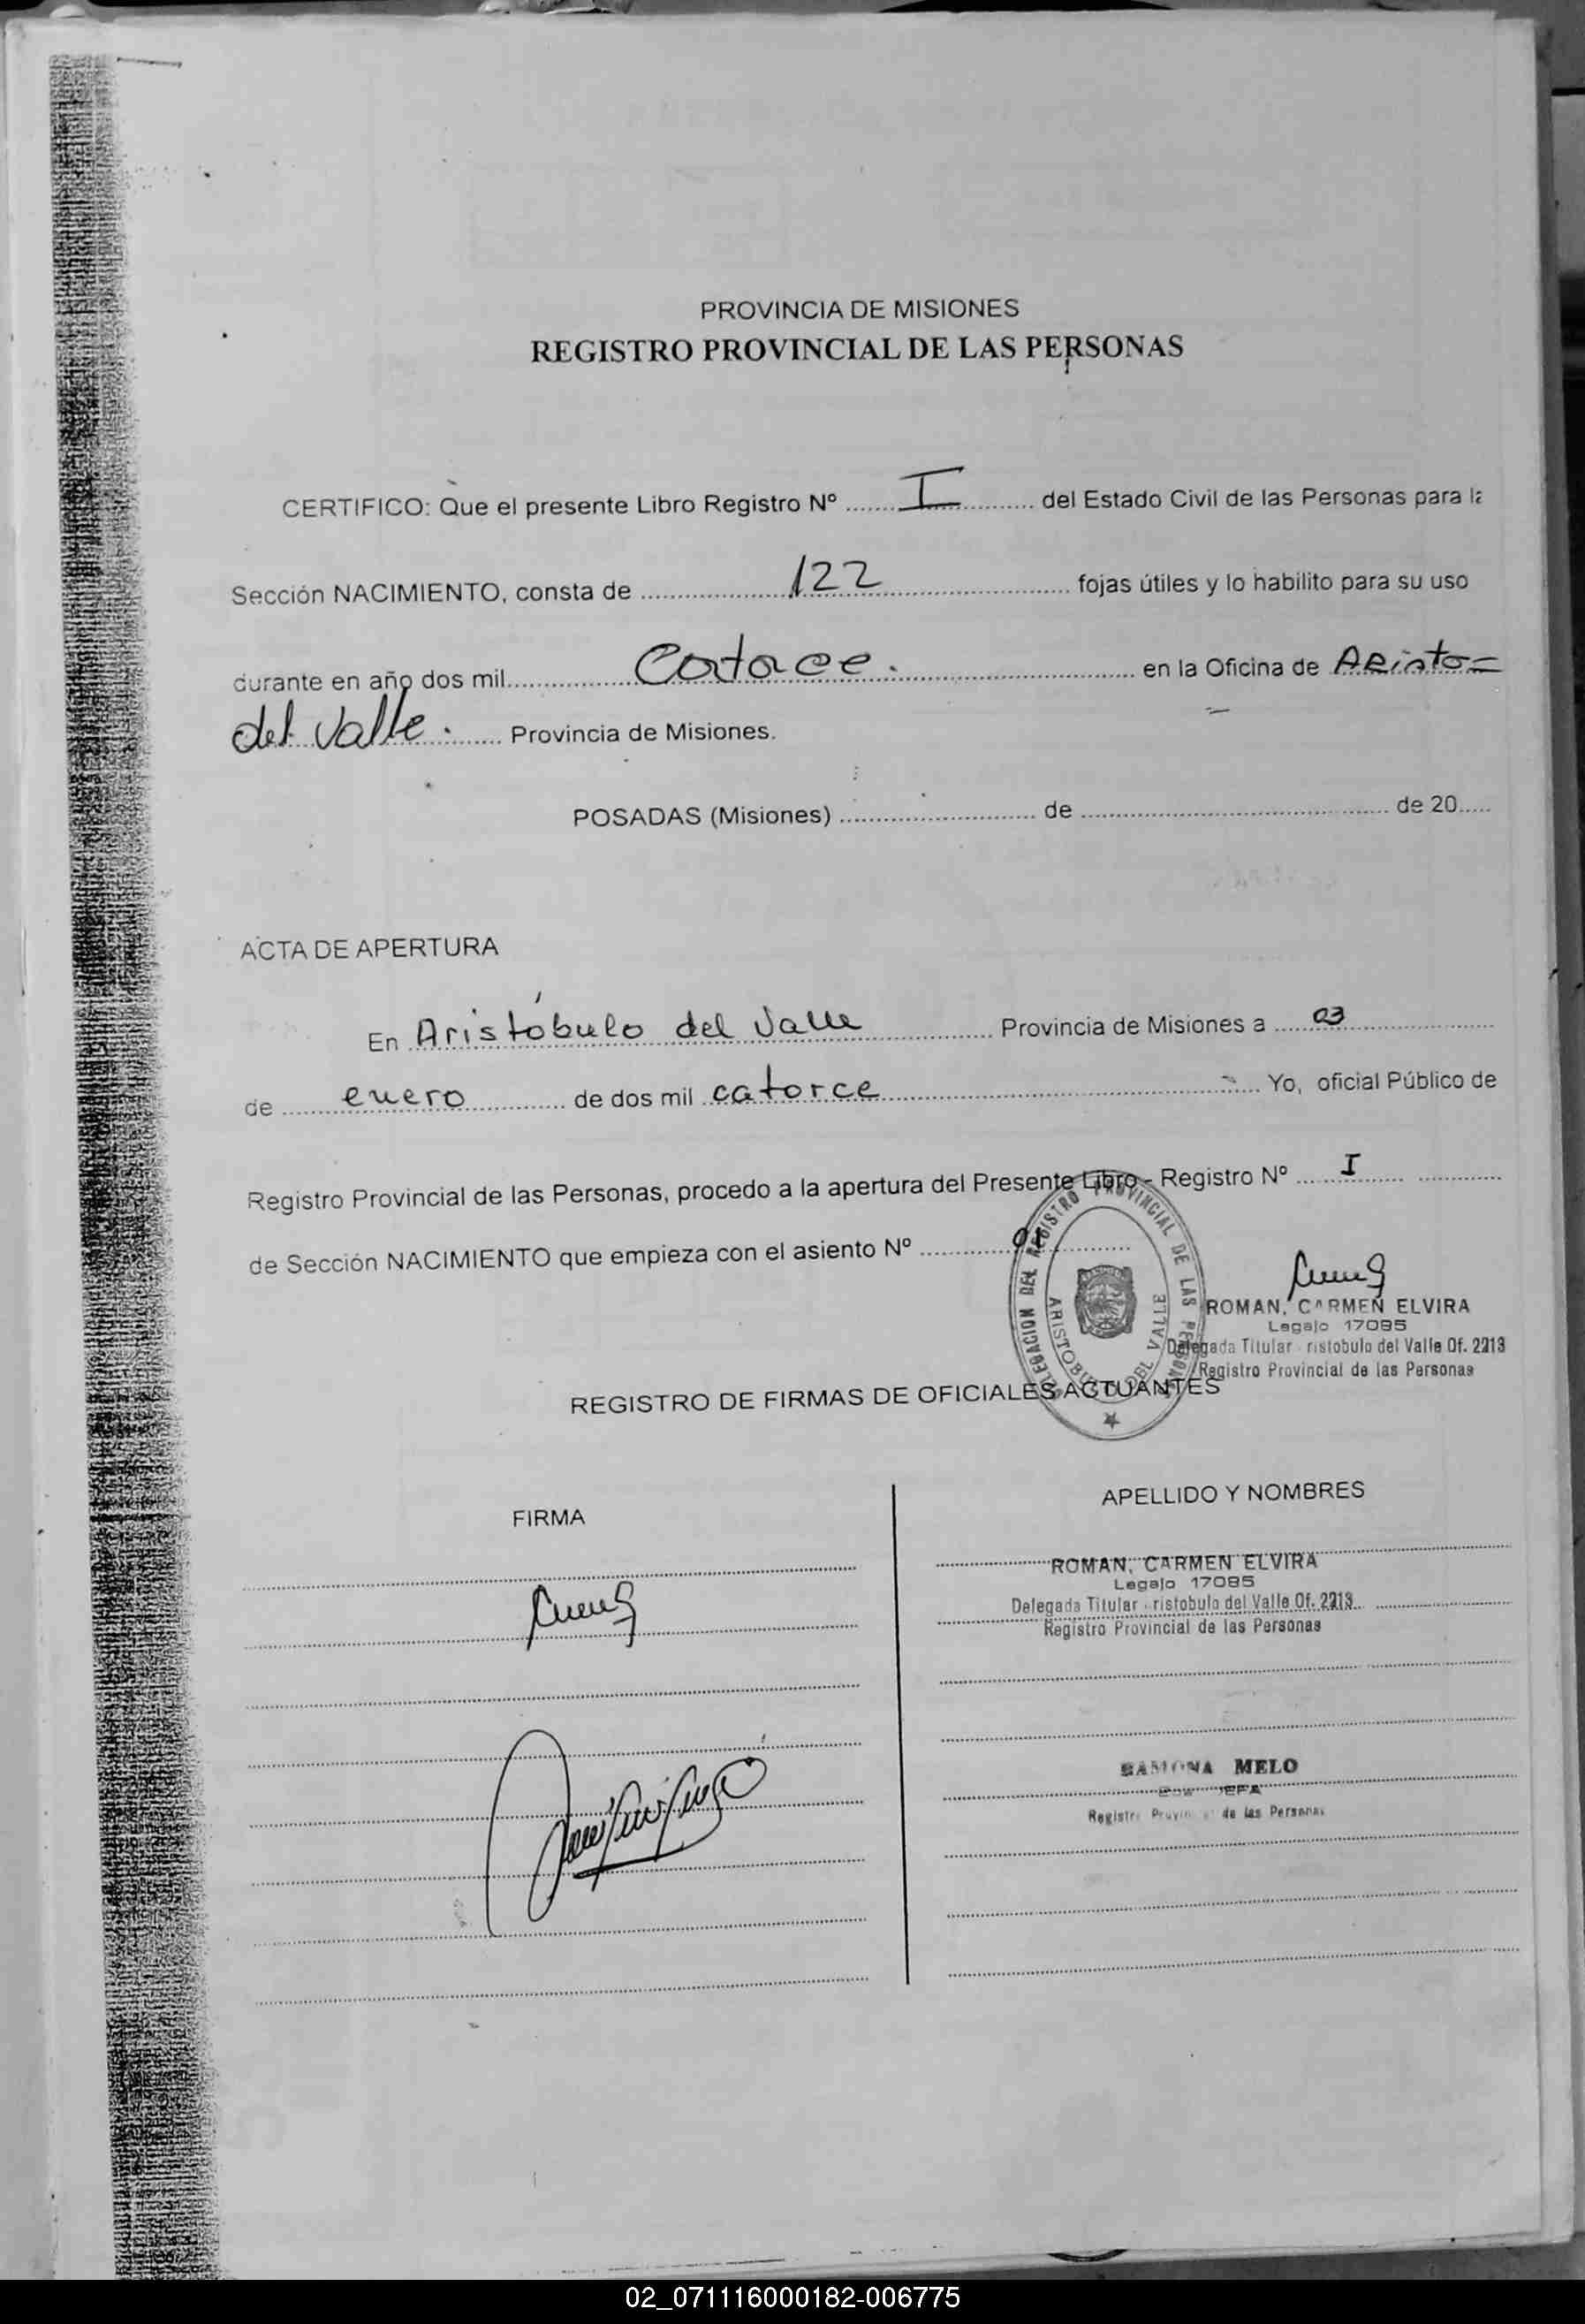 PROVINCIA DE MISIONES
REGISTRO PROVINCIAL DE LAS PERSONAS
CERTIFICO: Que el presente Libro Registro Nº ....... I ............ del Estado Civil de las Personas para la
Sección NACIMIENTO, consta de .................... 122 .................... fojas útiles y lo habilito para su uso
durante en año dos mil................ Catorce. ........................ en la Oficina de Aristo=
del Valle. ........ Provincia de Misiones.
POSADAS (Misiones) ............................ de ............................................ de 20.....
ACTA DE APERTURA
En Aristóbulo del Valle ................ Provincia de Misiones a ..... 03 ....................
de ........ enero ............ de dos mil catorce ................................ Yo, oficial Público de
Registro Provincial de las Personas, procedo a la apertura del Presente Libro - Registro Nº ...... I ...... ............
de Sección NACIMIENTO que empieza con el asiento Nº ............. 01 ............
DELEGACION DEL REGISTRO PROVINCIAL DE LAS PERSONAS
ARISTOBULO DEL VALLE
ROMAN, CARMEN ELVIRA
Legajo 17095
Delegada Titular ristobulo del Valle Of. 2213
Registro Provincial de las Personas
REGISTRO DE FIRMAS DE OFICIALES ACTUANTES
FIRMA
APELLIDO Y NOMBRES
ROMAN, CARMEN ELVIRA
Legajo 17095
Delegada Titular ristobulo del Valle Of. 2213
Registro Provincial de las Personas
RAMONA MELO
JEFA
Registro Provincial de las Personas
02_071116000182-006775